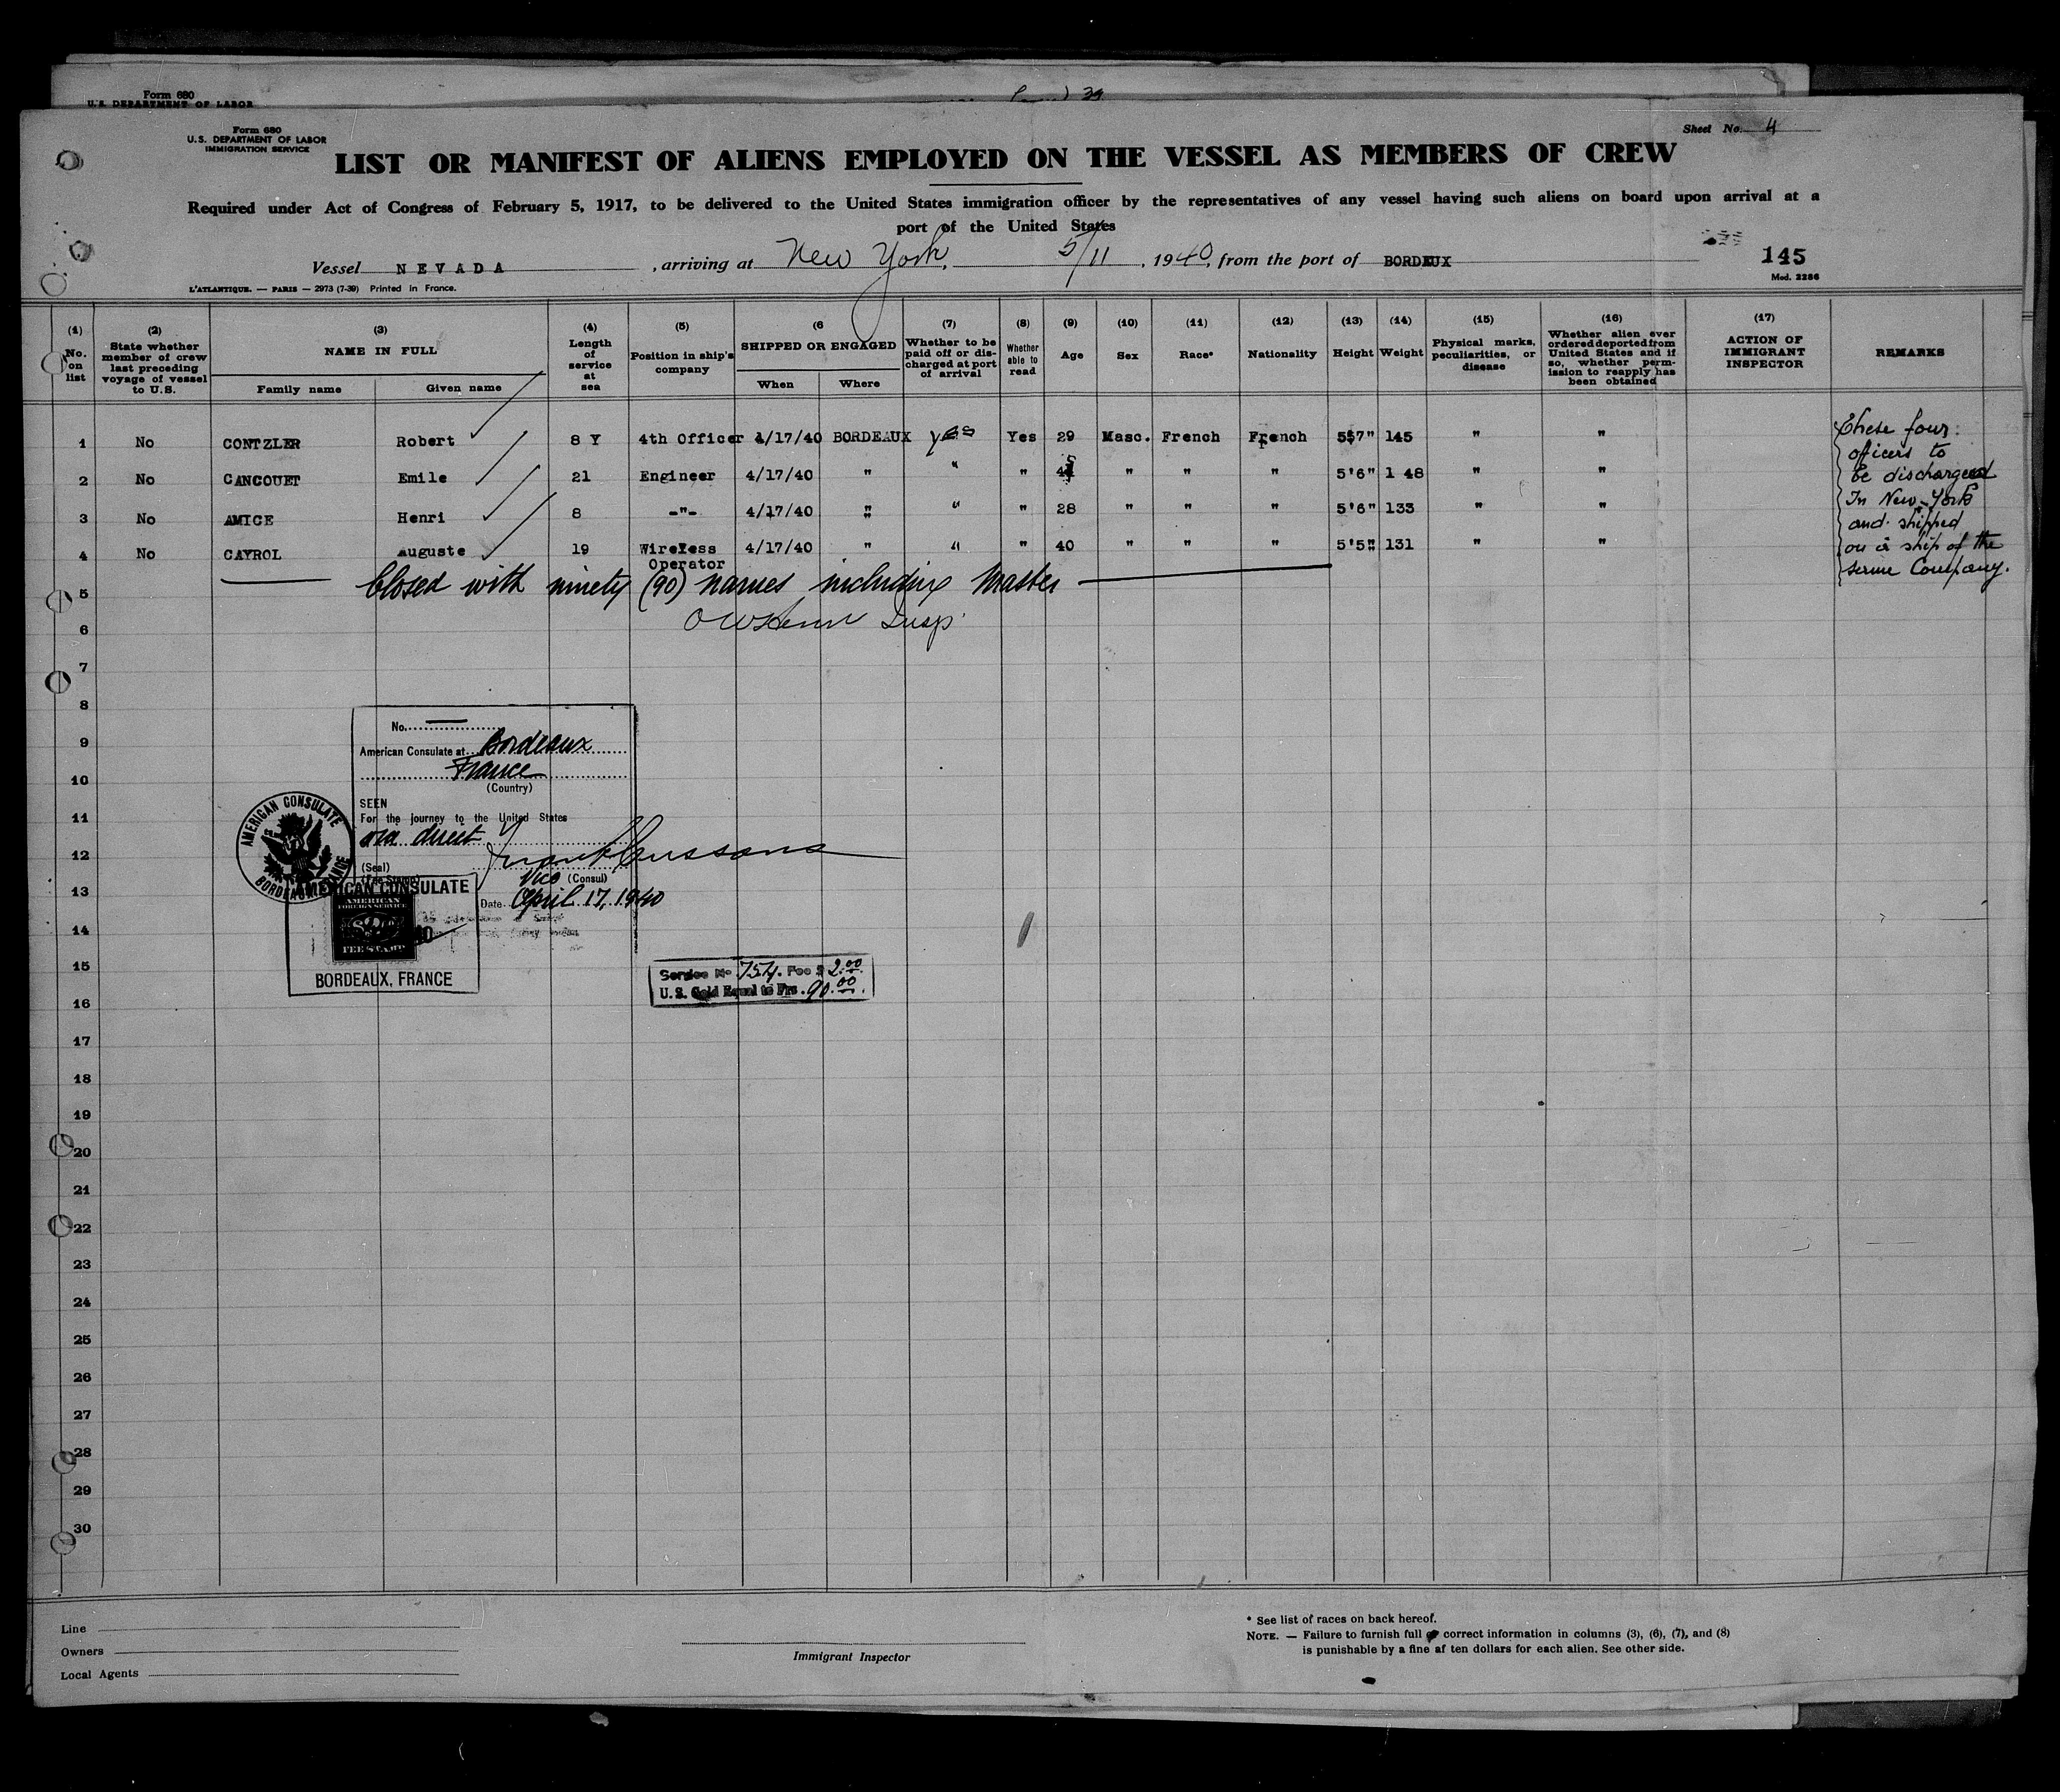 Form 680
U.S. DEPARTMENT OF LABOR
Form 680
U.S. DEPARTMENT OF LABOR
IMMIGRATION SERVICE
Sheet No. 4
LIST OR MANIFEST OF ALIENS EMPLOYED ON THE VESSEL AS MEMBERS OF CREW
Required under Act of Congress of February 5, 1917, to be delivered to the United States immigration officer by the representatives of any vessel having such aliens on board upon arrival at a
port of the United States
Vessel NEVADA, arriving at New York, 5/11, 1940, from the port of BORDEUX
145
Mod. 2286
L'ATLANTIQUE. — PARIS — 2973 (7-39) Printed in France.
(1) No. on list
(2) State whether member of crew last preceding voyage of vessel to U.S.
(3) NAME IN FULL
Family name
Given name
(4) Length of service at sea
(5) Position in ship's company
(6 SHIPPED OR ENGAGED
When
Where
(7) Whether to be paid off or discharged at port of arrival
(8) Whether able to read
(9) Age
(10) Sex
(11) Race*
(12) Nationality
(13) Height
(14) Weight
(15) Physical marks, peculiarities, or disease
(16) Whether alien ever ordered deported from United States and if so, whether permission to reapply has been obtained
(17) ACTION OF IMMIGRANT INSPECTOR
REMARKS
1 No CONTZLER Robert 8 Y 4th Officer 4/17/40 BORDEAUX yes Yes 29 Masc. French French 5'7" 145 " "
2 No CANCOUET Emile 21 Engineer 4/17/40 " " " 45 " " " 5'6" 1 48 " "
3 No AMICE Henri 8 -"- 4/17/40 " " " 28 " " " 5'6" 133 " "
4 No CAYROL Auguste 19 Wireless Operator 4/17/40 " " " 40 " " " 5'5" 131 " "
These four
officers to
be discharged
In New-York
and shipped
on a ship of the
same Company.
Closed with ninety (90) names including Master
Insp
5
6
7
8
9
10
11
12
13
14
15
16
17
18
19
20
21
22
23
24
25
26
27
28
29
30
No.
American Consulate at Bordeaux
France
(Country)
SEEN
For the journey to the United States
via direct
(Seal)
(Fee Stamp)
Vice (Consul)
Date April 17, 1940
AMERICAN CONSULATE
BORDEAUX, FRANCE
AMERICAN CONSULATE
AMERICAN
FOREIGN SERVICE
FEE STAMP
BORDEAUX, FRANCE
Service No 754. Fee $ 2.00
U.S. Gold Equal to Frs. 90.00
Line
Owners
Local Agents
Immigrant Inspector
* See list of races on back hereof.
NOTE. — Failure to furnish full or correct information in columns (3), (6), (7), and (8)
is punishable by a fine af ten dollars for each alien. See other side.